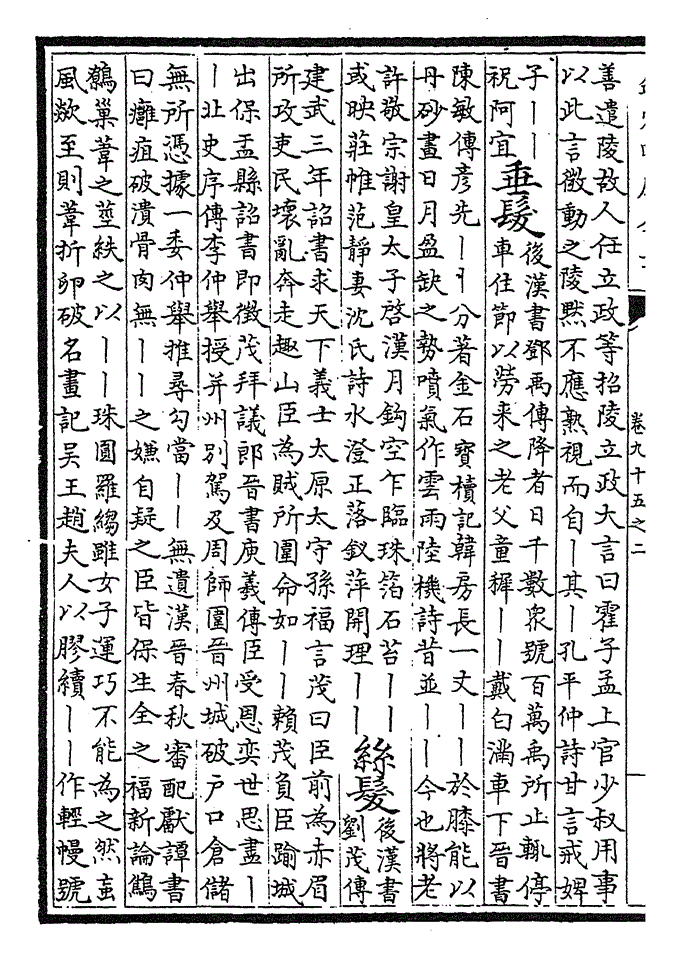 卷九十五之二
善遣陵故人任立政等招陵立政大言曰霍子孟上官少叔用事
以此言微動之陵黙不應熟視而自丨其丨孔平仲詩甘言戒婢
子丨丨
祝阿宜
垂髮
後漢書鄧禹傳降者日千數衆號百萬禹所止輒停
車住節以勞来之老父童穉丨丨戴白滿車下晉書
陳敏傳彦先丨丨分著金石寶櫝記韓房長一丈丨丨於膝能以
丹砂畫日月盈缺之勢噴氣作雲雨陸機詩昔並丨丨今也將老
許敬宗謝皇太子啓漢月鈎空乍臨珠箔石苔丨丨
或映莊帷范靜妻沈氏詩水澄正落釵萍開理丨丨
絲髮
後漢書
劉茂傳
建武三年詔書求天下義士太原太守孫福言茂曰臣前為赤眉
所攻吏民壊亂奔走趣山臣為賊所圍命如丨丨賴茂負臣踰城
出保盂縣詔書即徴茂拜議郎晉書庾羲傳臣受恩奕世思盡丨
丨北史序傳李仲舉授并州别駕及周師圍晉州城破户口倉儲
無所憑據一委仲舉推尋勾當丨丨無遺漢晉春秋審配獻譚書
曰癰疽破潰骨肉無丨丨之嫌自疑之臣皆保生全之福新論鷦
鷯巢葦之莖紩之以丨丨珠圓羅縐雖女子運巧不能為之然
風歘至則葦折卵破名畫記吳王趙夫人以膠續丨丨作輕幔號